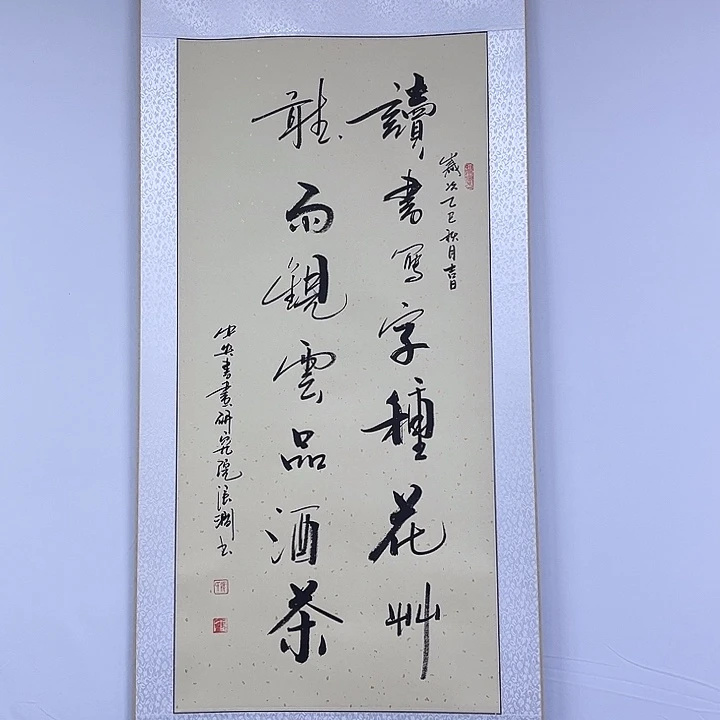 歲次乙巳秋月吉日
讀書寫字種花艸
聽雨觀雲品酒茶
中央書畫研究院浪潮书